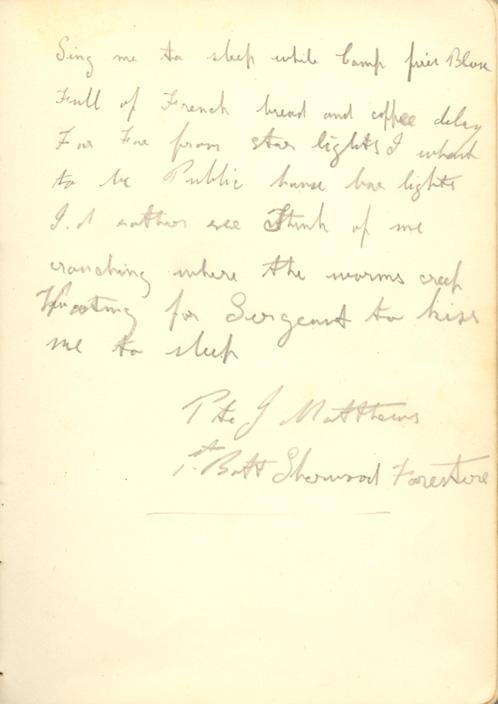 Sing me to sleep while Camp fires Blase
Full of French bread and coffee delay
Far Far from star lights I whant
to be Public house bar lights
I.d rather see Think of me
crouching where the worms creep
Waiting for Sergeant to kiss
me to sleep
Pte J Matthews
1st Batt Sherwood Foresters